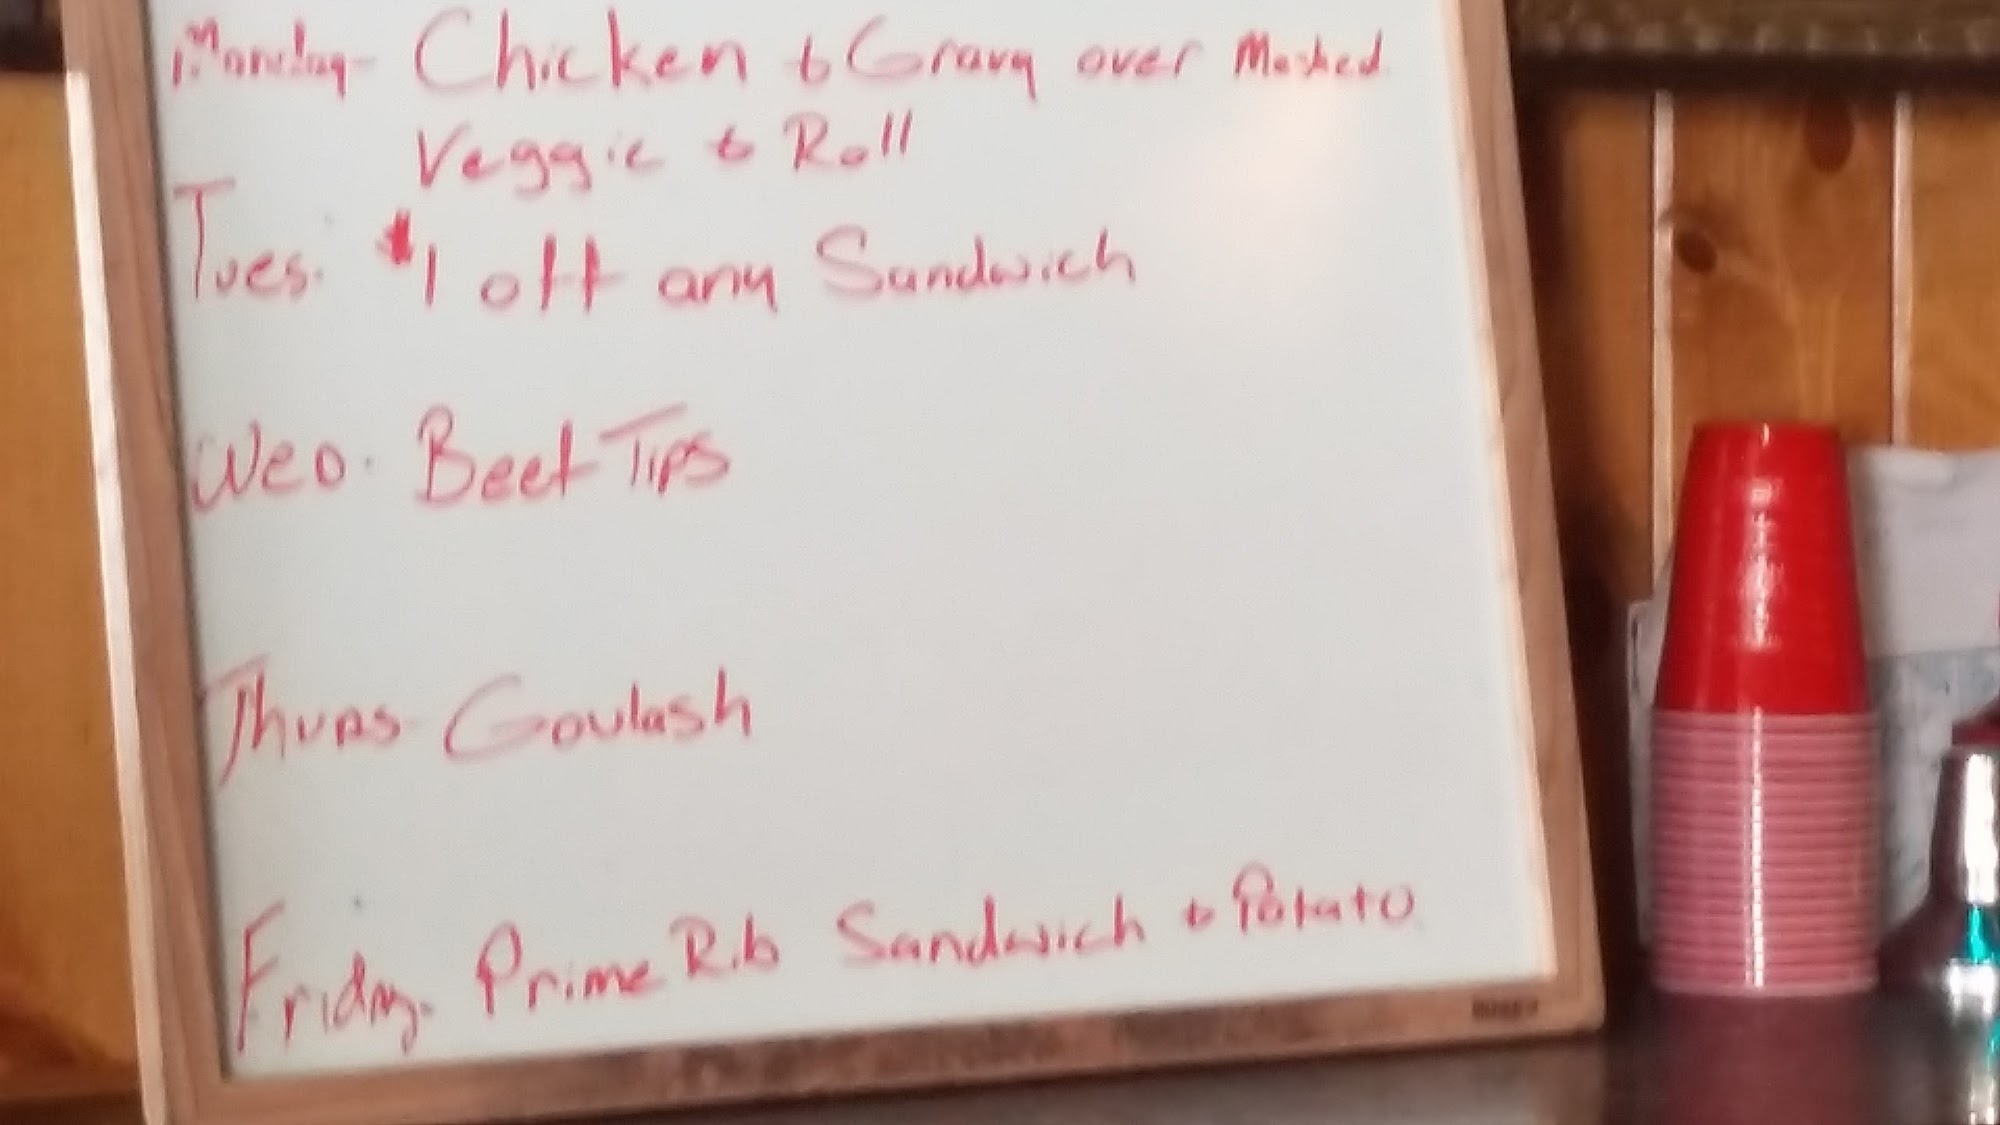 Monday- Chicken & Gravy over Mashed
Veggie & Roll
Tues. $1 off any Sandwich
Wed. Beef Tips
Thurs- Goulash
Friday. Prime Rib Sandwich & Potato